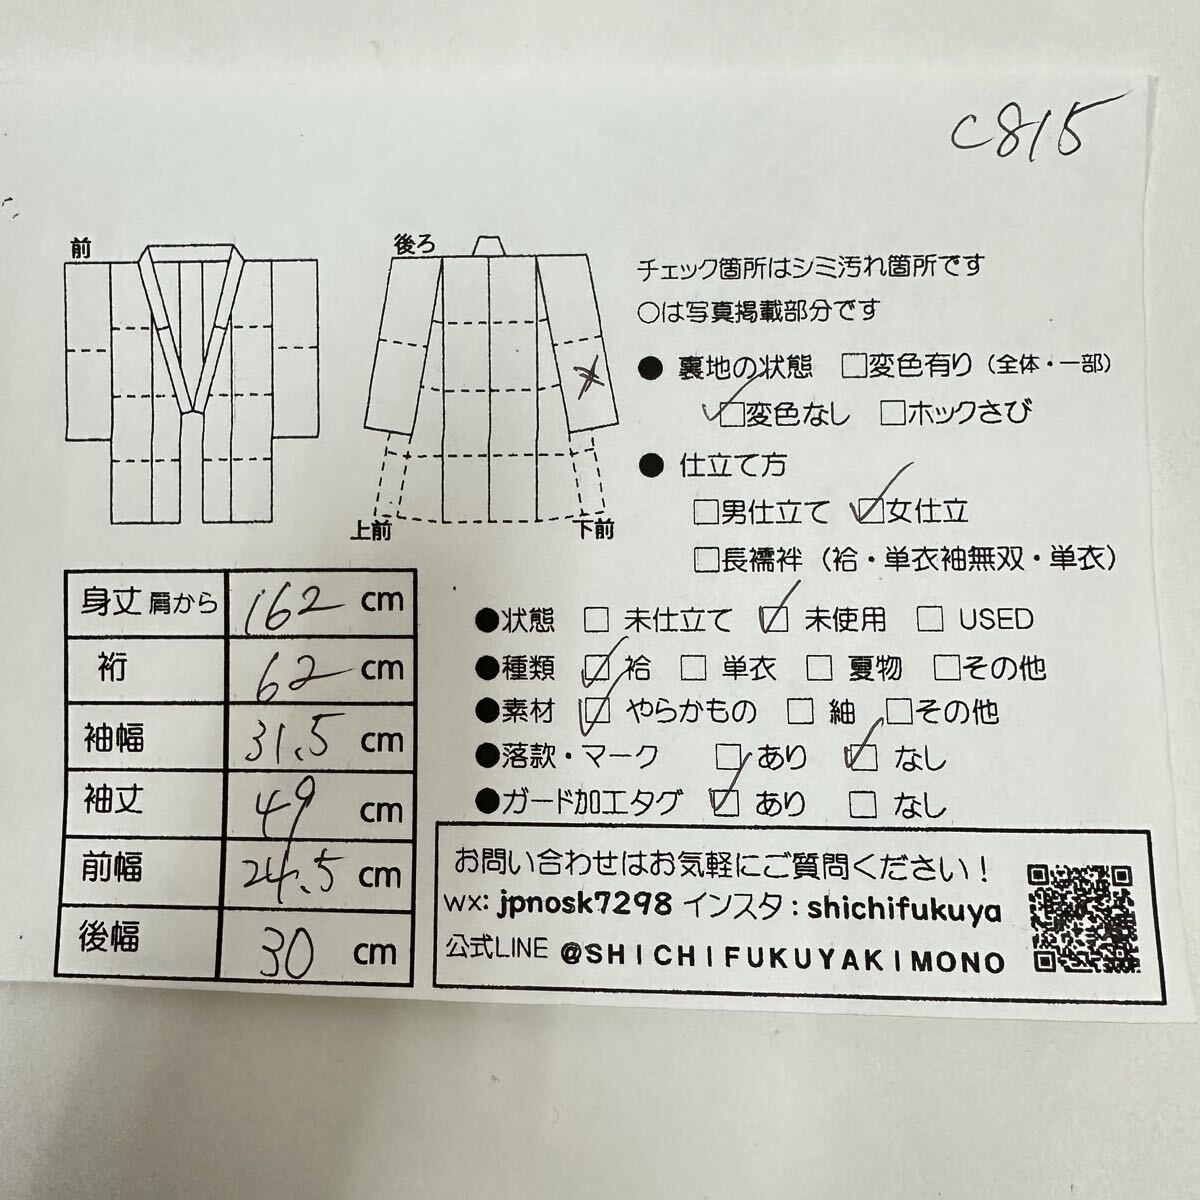 C815
前
後ろ
上前
下前
チェック箇所はシミ汚れ箇所です
○は写真掲載部分です
● 裏地の状態 □変色有り（全体・一部）
☑変色なし □ホックさび
● 仕立て方
□男仕立て ☑女仕立
□長襦袢（袷・単衣袖無双・単衣）
●状態 □ 未仕立て ☑ 未使用 □ USED
●種類 ☑ 袷 □ 単衣 □ 夏物 □その他
●素材 ☑ やらかもの □ 紬 □その他
●落款・マーク □ あり ☑ なし
●ガード加工タグ ☑ あり □ なし
身丈 肩から 162 cm
裄 62 cm
袖幅 31.5 cm
袖丈 49 cm
前幅 24.5 cm
後幅 30 cm
お問い合わせはお気軽にご質問ください！
wx: jpnosk7298 インスタ : shichifukuya
公式LINE @SHICHIFUKUYAKIMONO